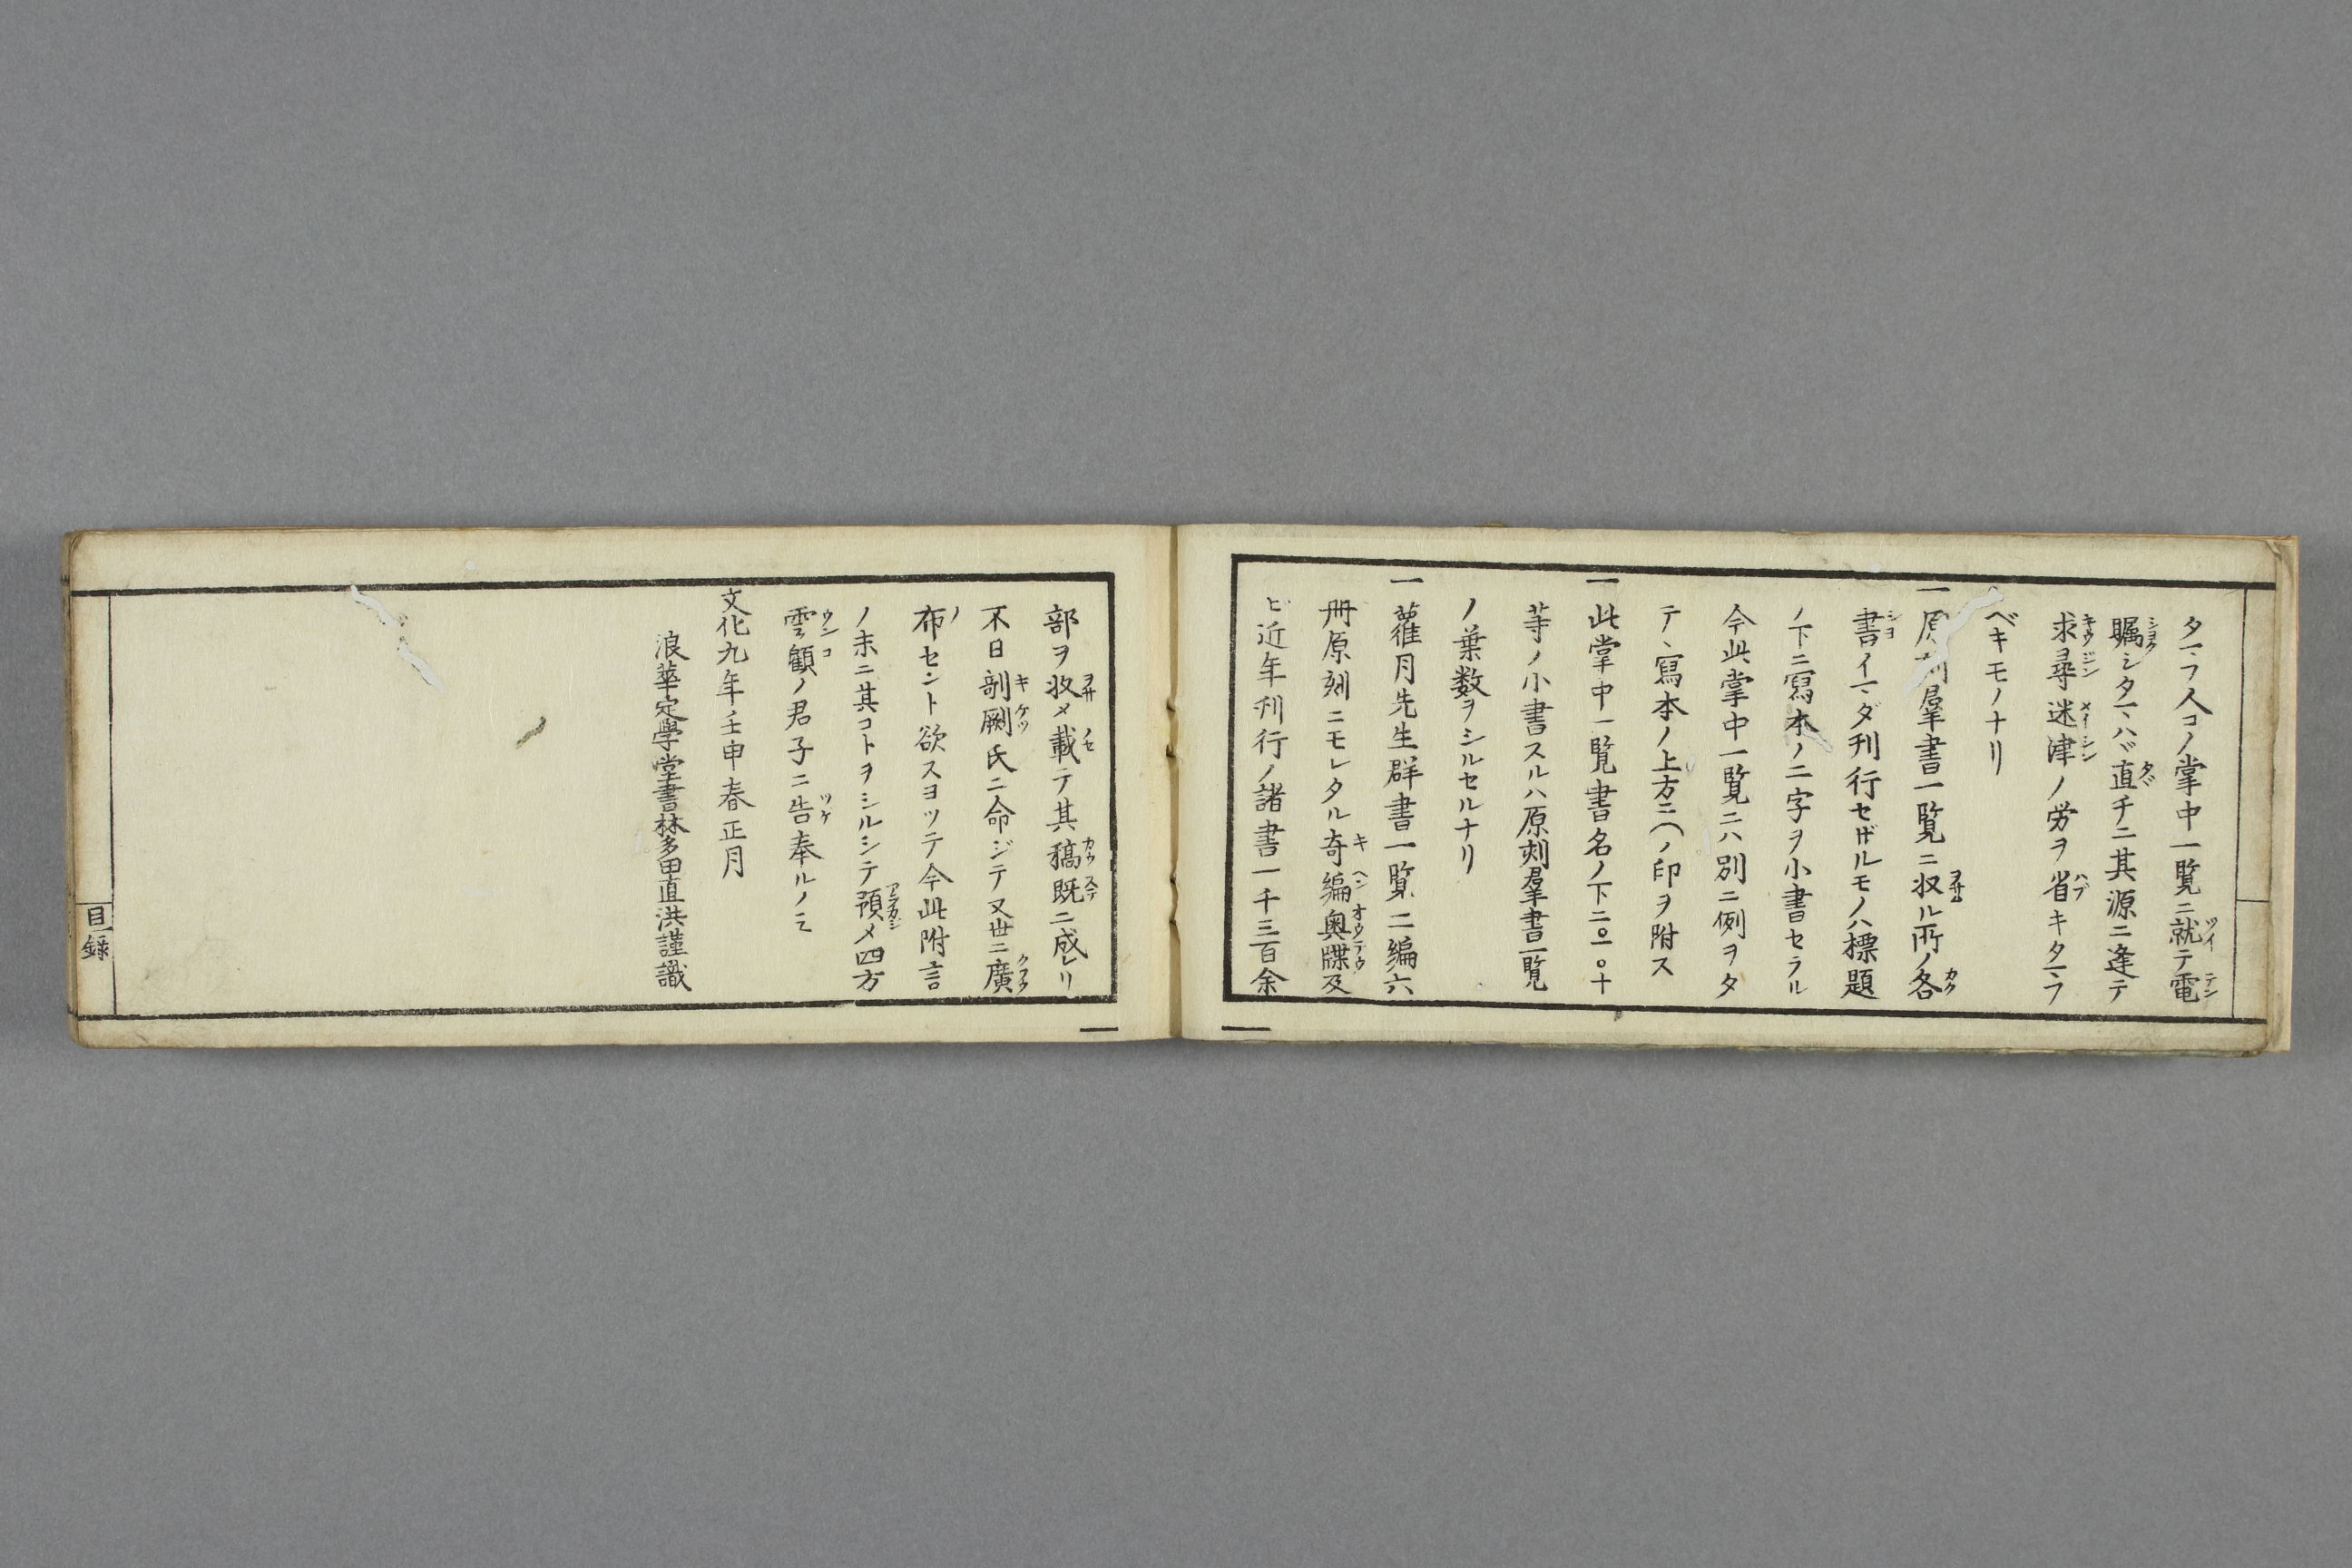 タマフ人コノ掌中一覧ニ就テ電
矚シタマハヾ直チニ其源ニ逢テ
求尋迷津ノ労ヲ省キタマフ
ベキモノナリ
一原刻羣書一覧ニ収ル所ノ各
書イマダ刊行セザルモノハ標題
ノ下ニ寫本ノ二字ヲ小書セラル
今此掌中一覧ニハ別ニ例ヲタ
テヽ寫本ノ上方ニ︵ノ印ヲ附ス
一此掌中一覧書名ノ下ニ一〇十
等ノ小書スルハ原刻羣書一覧
ノ葉数ヲシルセルナリ
一蘿月先生群書一覧二編六
冊原刻ニモレタル奇編奥牒及
ビ近年刊行ノ諸書一千三百余
部ヲ收メ載テ其稿既ニ成レリ
不日剞劂氏ニ命ジテ又世ニ廣
布セント欲スヨツテ今此附言
ノ末ニ其コトヲシルシテ預メ四方
雲顧ノ君子ニ告奉ルノミ
文化九年壬申春正月
浪華定學堂書林多田直洪謹識
目録